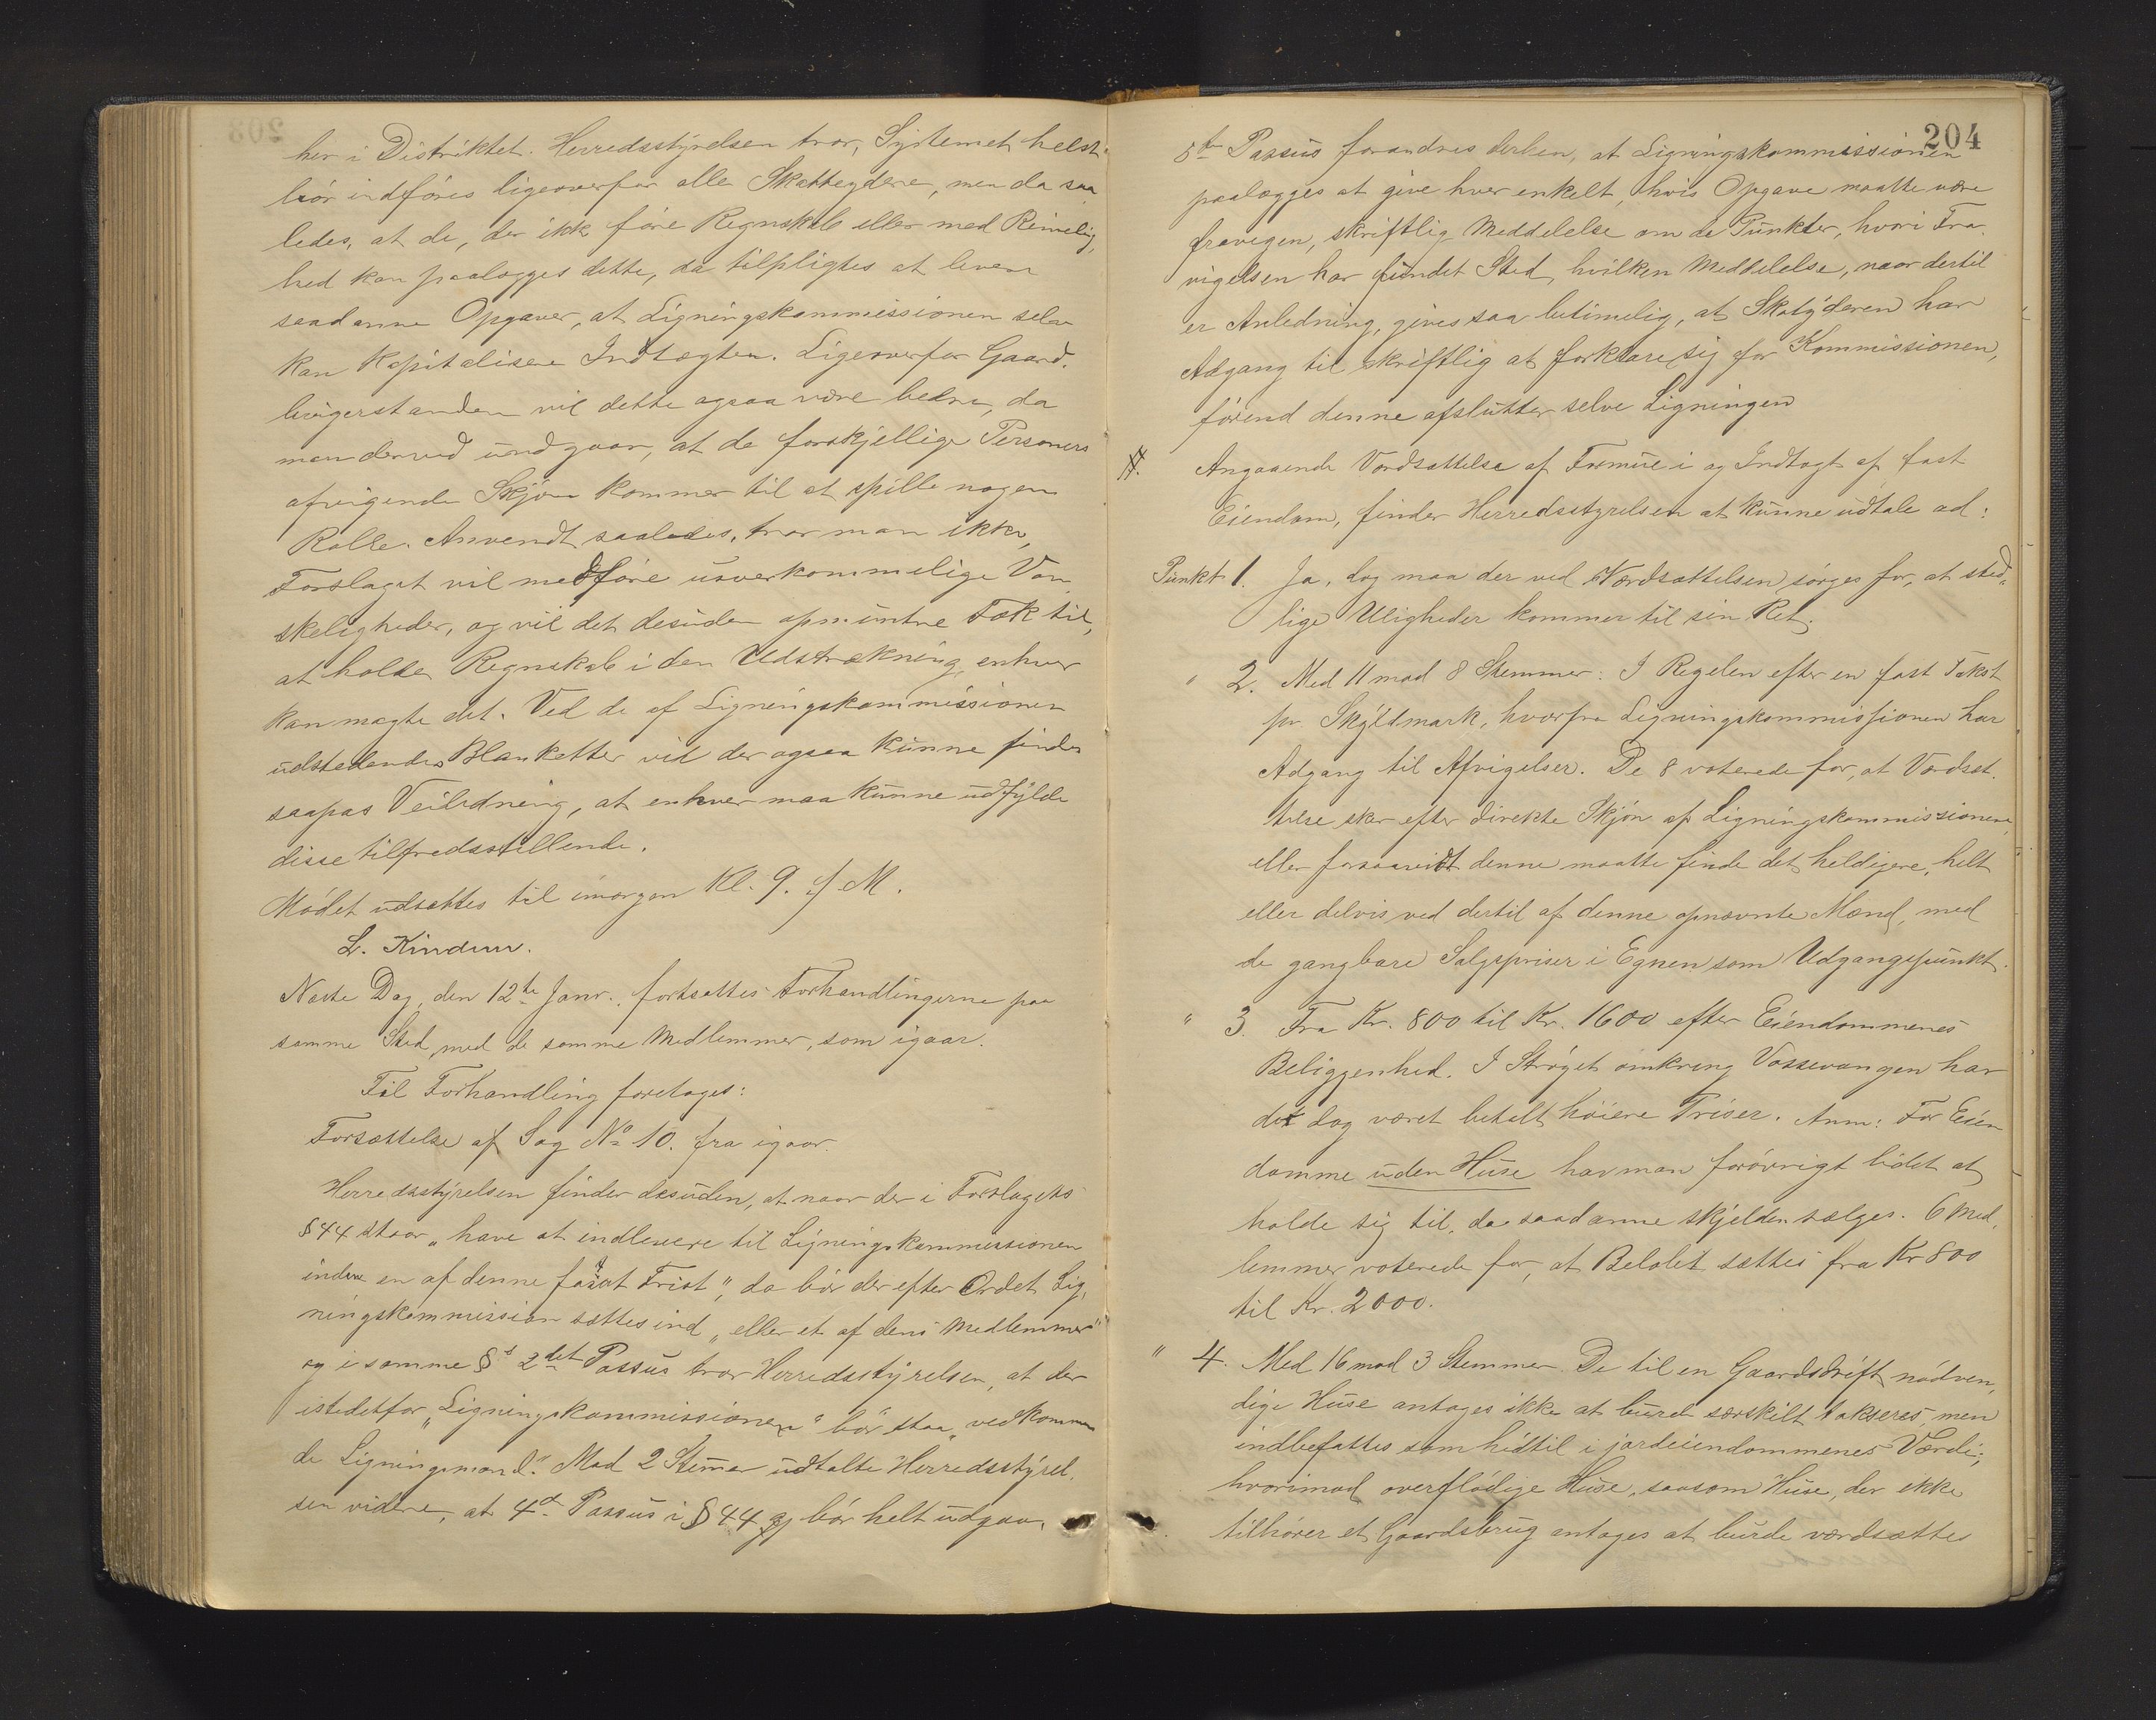 her i Distriktet. Herredsstyrelsen tror, Systemet helst
bør indføres ligeoverfor alle Skatteydere, men da saa
ledes, at de, der ikke føre Regnskab eller med Rimelig,
hed kan paalægges dette, da tilpligtes at levere
saadanne Opgaver, at Ligningskommissionen selv
kan kapitalisere Indtægten. Ligeoverfor Gaard,
brugerstanden vil dette ogsaa være bedre, da
man derved undgaar, at de forskjellige Personers
afvigende Skjøn kommer til at spille nogen
Rolle. Anvendt saaledes, tror man ikke,
Forslaget vil medføre uoverkommelige Van,
skeligheder, og vil det desuden opmuntre Folk til,
at holde Regnskab i den Udstrækning, enhver
kan magte det. Ved de af Ligningskommissionen
udstedendes Blanketter vil der ogsaa kunne findes
saapas Veiledning, at enhver maa kunne udfylde
disse tilfredsstillende.
Mødet udsættes til imorgen Kl. 9. f M.
L. Kindem.
Næste Dag, den 12te Janr., fortsattes Forhandlingerne paa
samme Sted, med de samme Medlemmer, som igaar.
Til Forhandling foretages:
Forsættelse af Sag No 10. fra igaar.
Herredsstyrelsen finder desuden, at naar der i Forslagets
§ 44 staar „have at indlevere til Ligningskommissionen
inden en af denne fasat Frist", da bør der efter Ordet Lig,
ningskommission sættes ind „eller et af dens Medlemmer"
og i samme §s 2det Passus tror Herredsstyrelsen, at der
istedetfor „Ligningskommissionen" bør staa „vedkommen
de Ligningsmand." Mod 2 Stemmer udtalte Herredsstyrel,
sen videre, at 4de Passus i § 44 bør helt udgaa.
204
5te Passus forandres derhen, at Ligningskommissionen
paalægges at give hver enkelt, hvis Opgave maatte være
fravegen, skriftlig Meddelelse om de Punkter, hvori Fra,
vigelsen har fundet Sted, hvilken Meddelelse, naar dertil
er Anledning, gives saa betimelig, at Skatyderen har
Adgang til skriftlig at forklare sig for Kommissionen,
førend denne afslutter selve Ligningen
Angaaende Værdsættelse af Formue i og Indtægt af fast
Eiendom, finder Herredsstyrelsen at kunne udtale ad:
Punkt 1. Ja, dog maa der ved Værdsættelsen sørges for, at sted,
lige Uligheder kommer til sin Ret.
" 2. Med 11 mod 8 Stemmer: I Regelen efter en fast Takst
pr. Skyldmark, hvorfra Ligningskommissionen har
Adgang til Afvigelser. De 8 voterede for, at Værdsæt,
telse sker efter direkte Skjøn af Ligningskommissionen,
eller forsaavidt denne maatte finde det heldigere, helt
eller delvis ved dertil af denne opnævnte Mænd, med
de gangbare Salgspriser i Egnen som Udgangspunkt.
" 3. Fra Kr. 800 til Kr. 1600 efter Eiendommenes
Beliggenhed. I Strøget omkring Vossevangen har
det dog været betalt høiere Priser. Anm: For Eien
domme uden Huse har man forøvrigt lidet at
holde sig til, da saadanne skjelden sælges. 6 Med,
lemmer voterede for, at Beløbet sættes fra Kr 800
til Kr. 2000.
" 4. Med 16 mod 3 Stemmer. De til en Gaardsdrift nødven,
dige Huse antages ikke at burde særskilt takseres, men
indbefattes som hidtil i jordeiendommenes Værdi;
hvorimod overflødige Huse, saasom Huse, der ikke
tilhører et Gaardsbrug antages at burde værdsættes